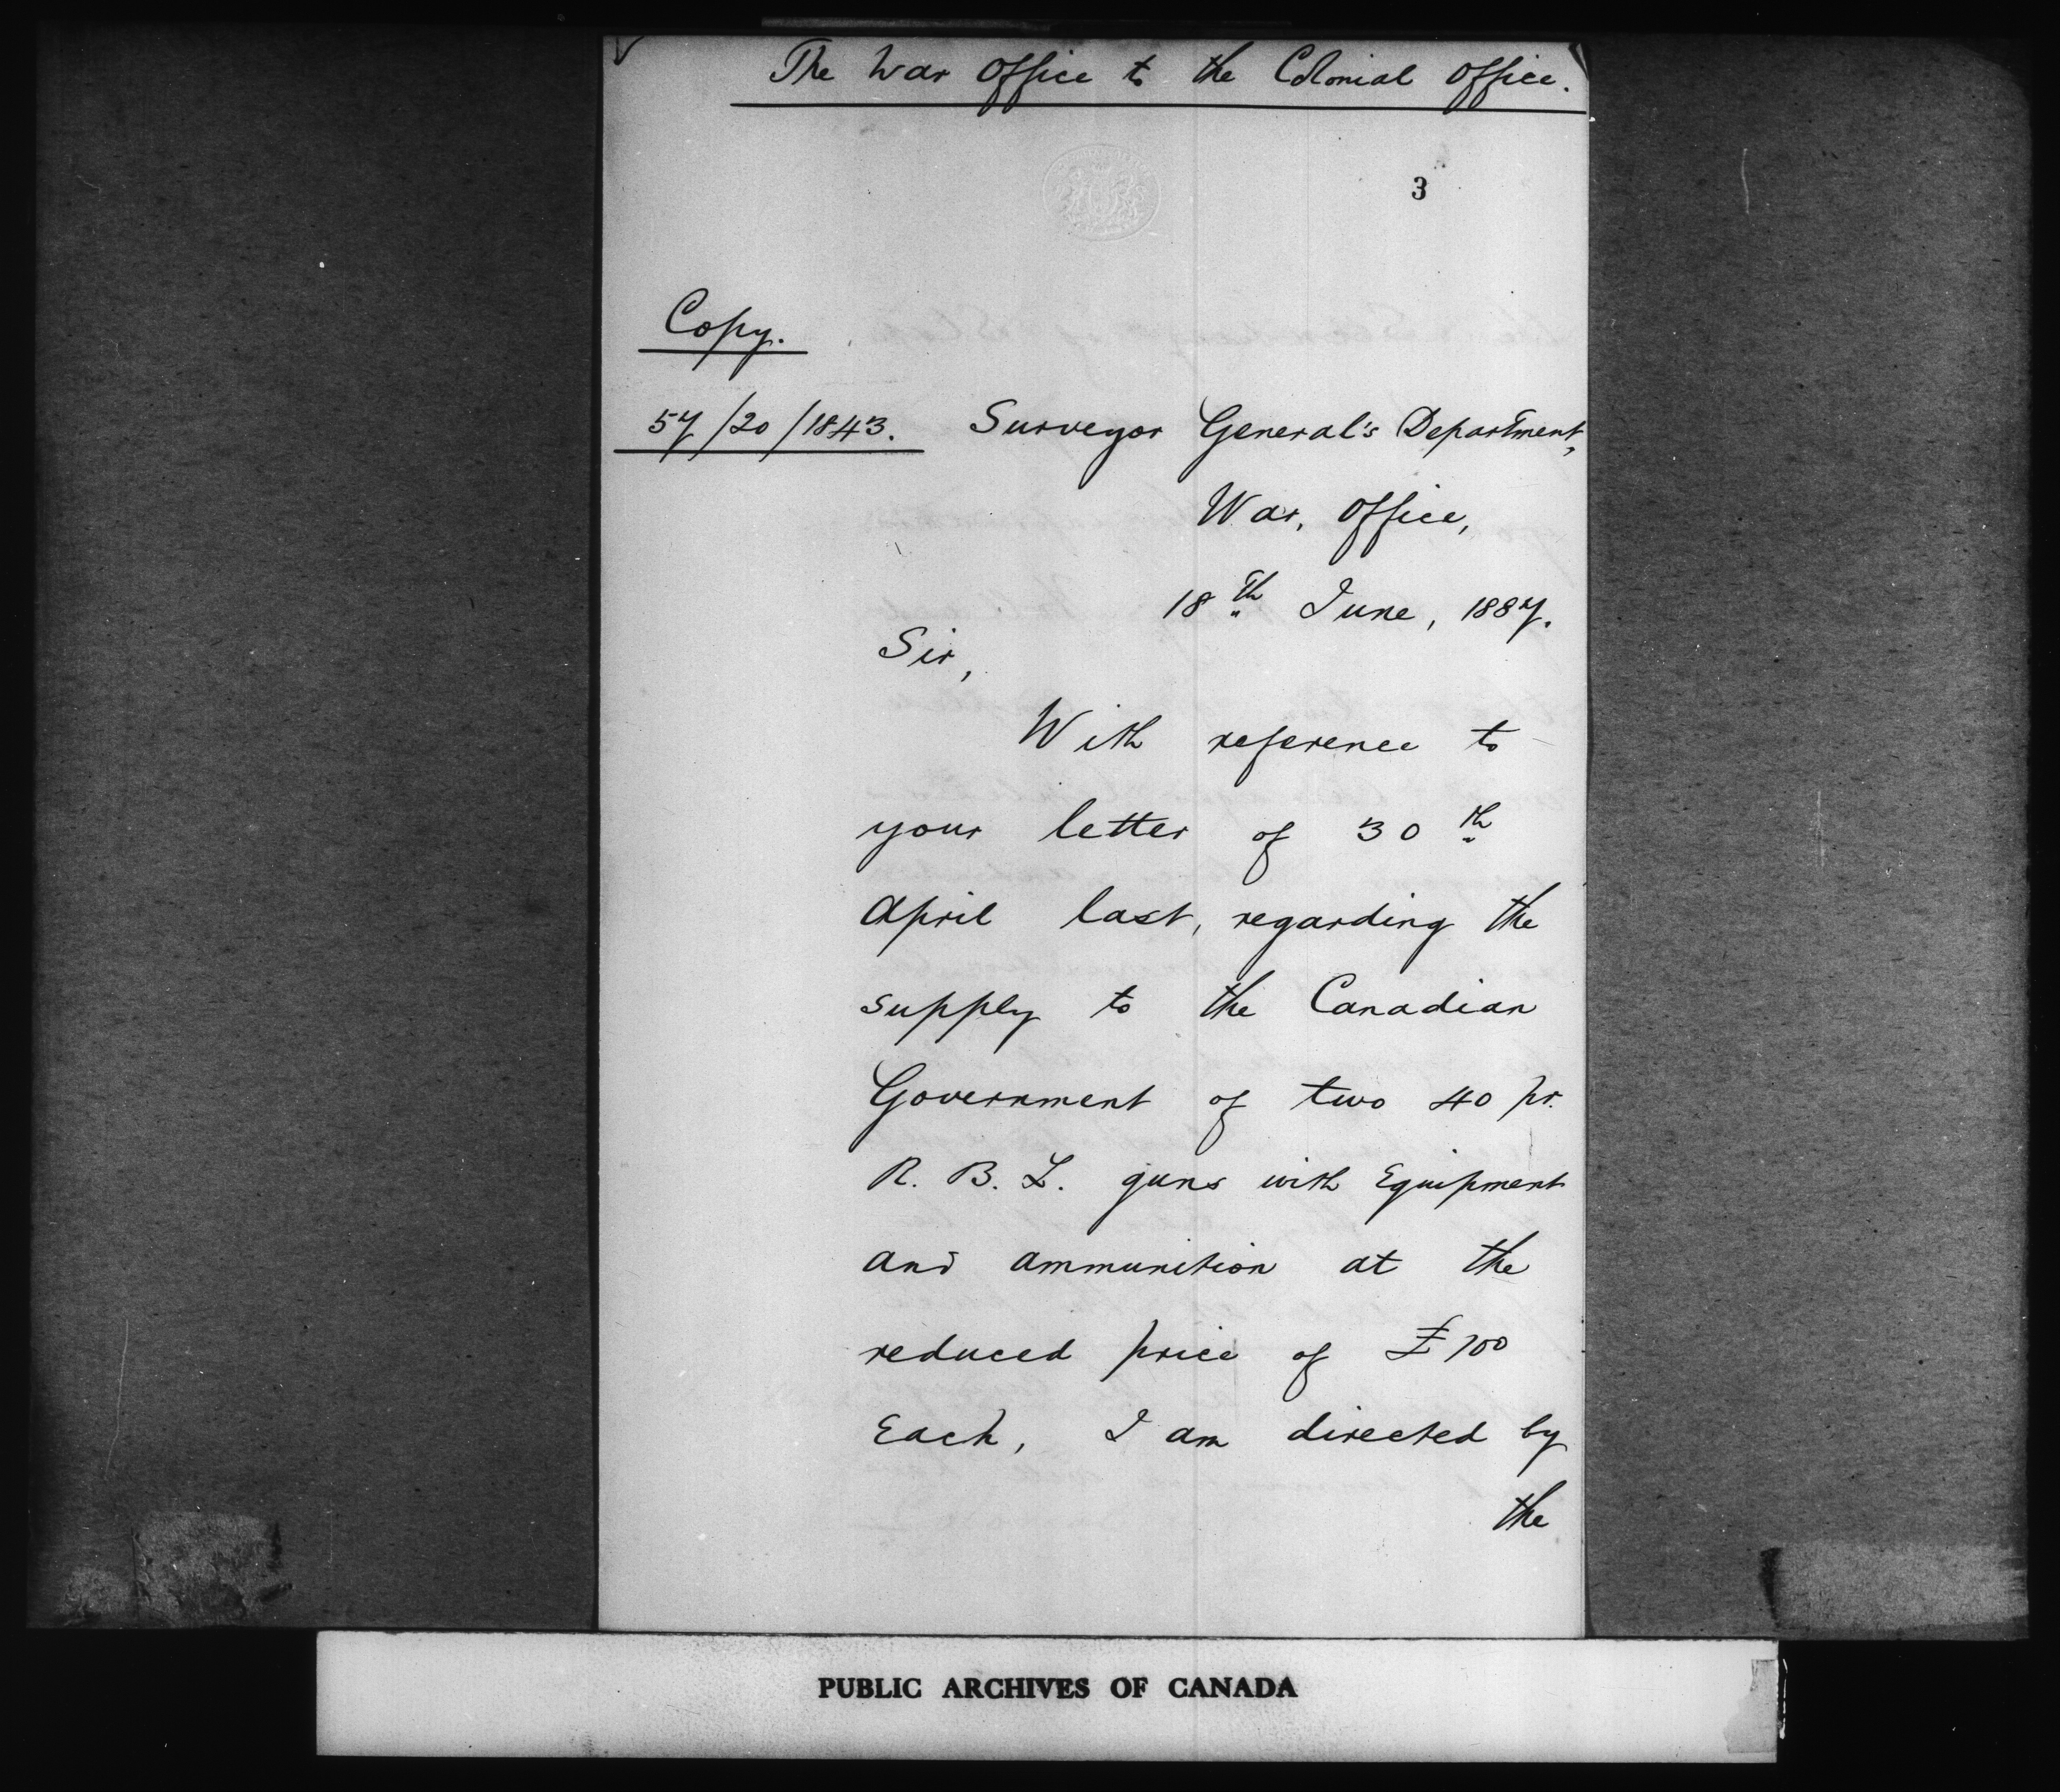 The War Office to the Colonial Office.
3
Copy.
57/20/1843. Surveyor General's Department,
War, Office,
18th June, 1887.
Sir,
With reference to
your letter of 30th
April last, regarding the
supply to the Canadian
Government of two 40 pr.
R. B. L. guns with Equipment
and ammunition at the
reduced price of £100
Each, I am directed by
the
PUBLIC ARCHIVES OF CANADA